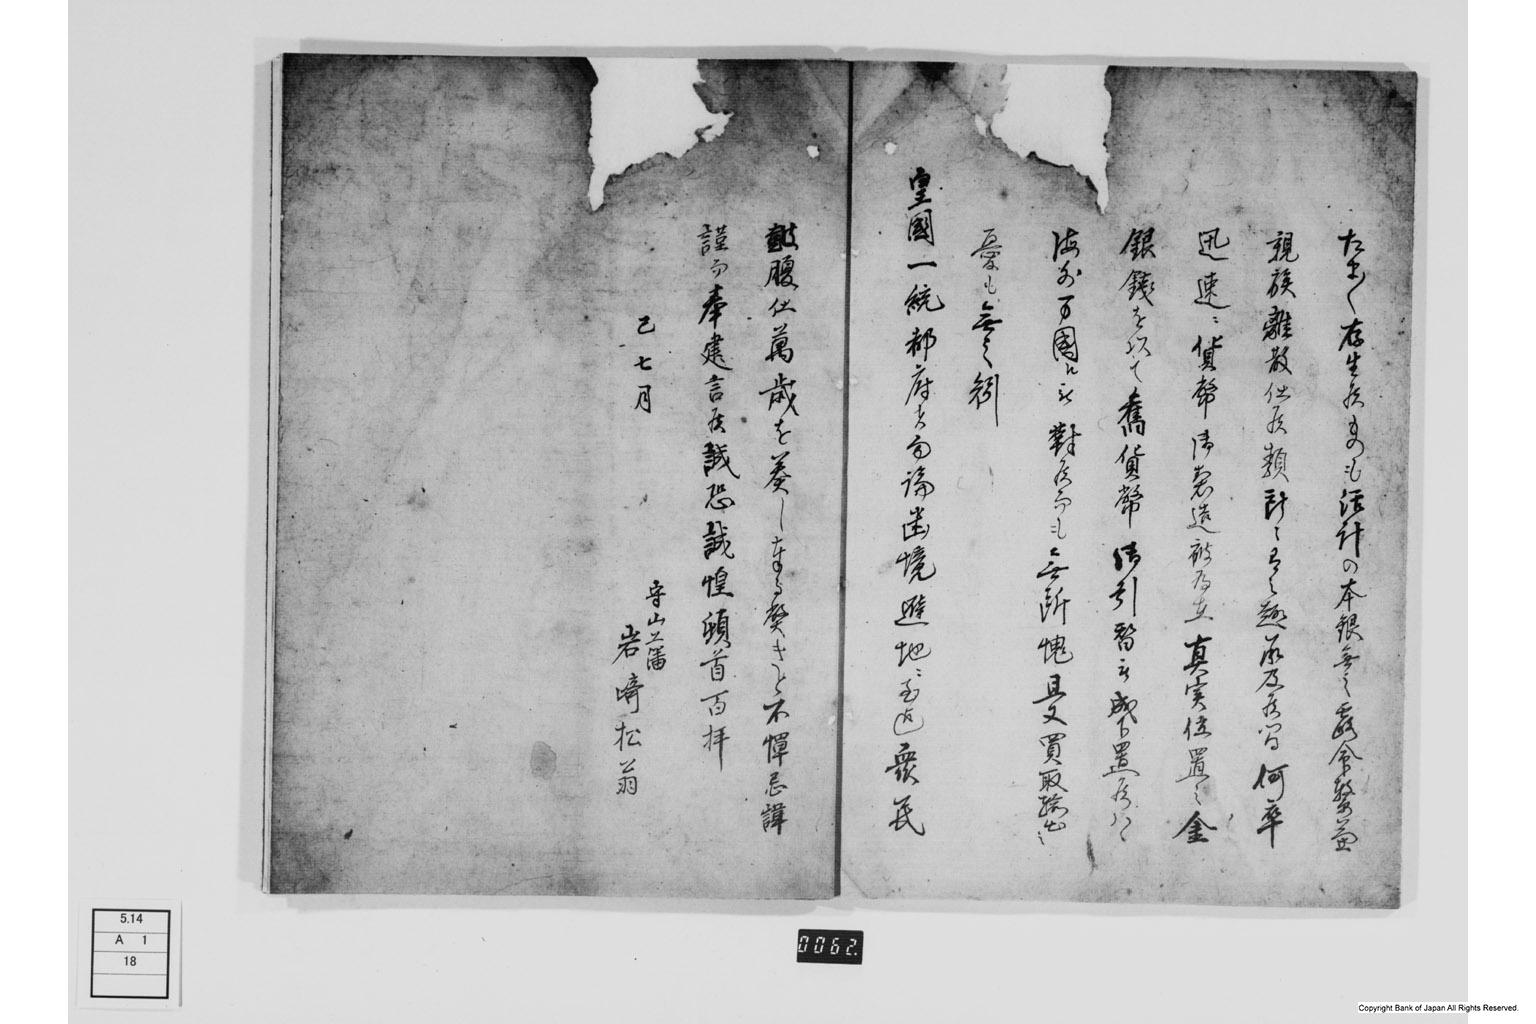 たま〱存生候ものも活計の本銀無之露命繋兼
親族離散仕候類許〻有之趣承及候間何卒
迅速ニ貨幣御製造被為在真実位置之金
銀銭を以て舊貨幣御引替被成下置候ハヽ
海外万國江被對候而も無所愧且又買取輸出之
憂も無之朝
皇國一統都府者勿論幽境避地ニ至迄衆民
鼓腹仕萬歳を奏し奉る
不憚忌諱
謹而奉建言候誠恐誠惶頓首百拝
己七月
守山藩
岩﨑松翁
5.14
A 1
18
0062.
Copyright Bank of Japan All Rights Reserved.